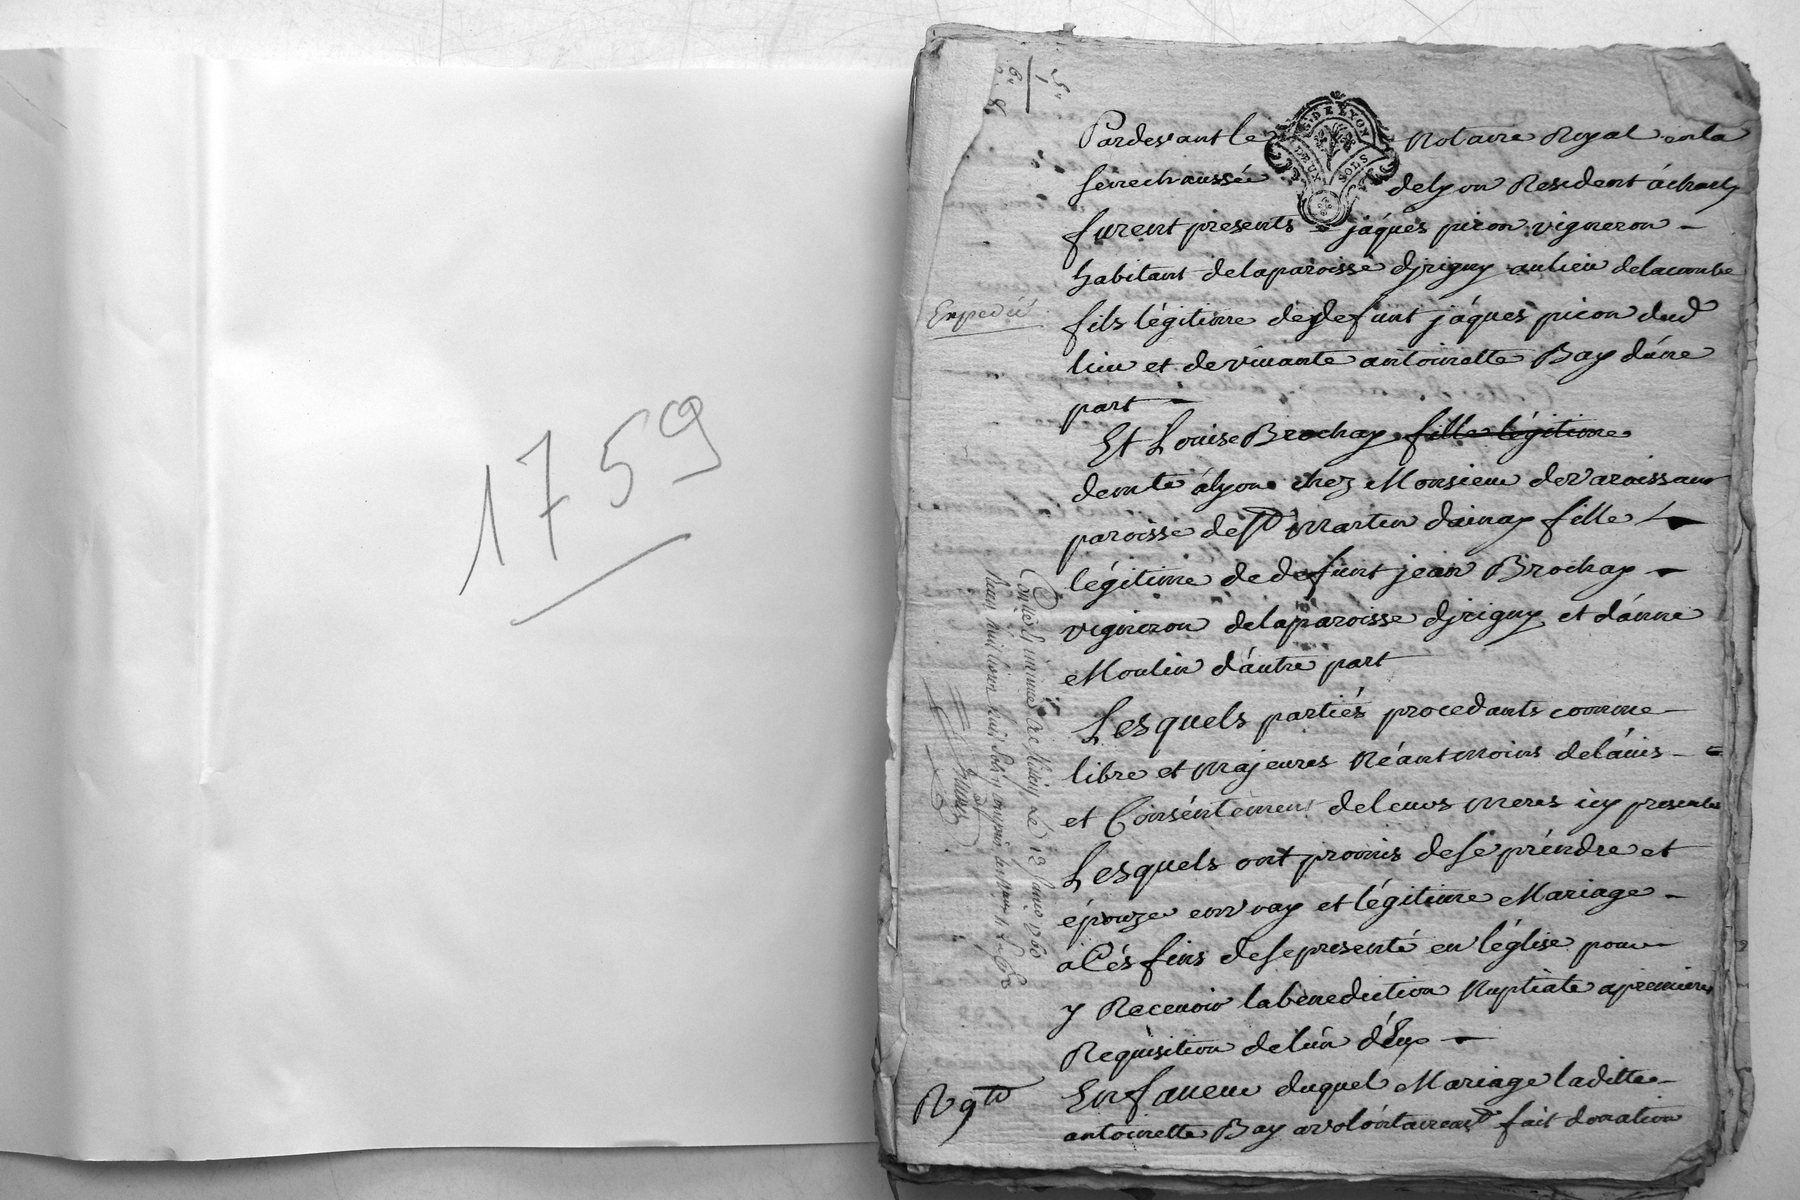 1759
Pardevant le Notaire Royal en la
senechaussée de lyon Resident à charly
furent presents jáqués picon vigneron
habitant de la paroisse djrigny au lieu de lacombe
fils légitime de defunt jáqués picon dud
lieu et de vivante antoinette Bay dúne
part
Et Louise Brochay fille légitime
demte à lyon chez Monsieur de varoissant
paroisse de st martin dainay fille
légitime de defunt jean Brochay
vigneron de la paroisse djrigny et dánne
Moulin dáutre part
Lesquels partiés procedants comme
libre et majeures Néantmoins de láuis
et Consentement de leurs meres icy presente
Lesquels ont promis de se préndre et
épouze en vray et légitime Mariage
a Cés fins de se presenté en léglise pour
y Receuoir la bènediction Nuptiale a premiere
Requisition de lún déux
En faueur duquel Mariage laditte
antoinette Bay a volóntairemt fait donation
Expedié
Controllé le 13 janv 1760
DEUX SOLS
G. DE LYON